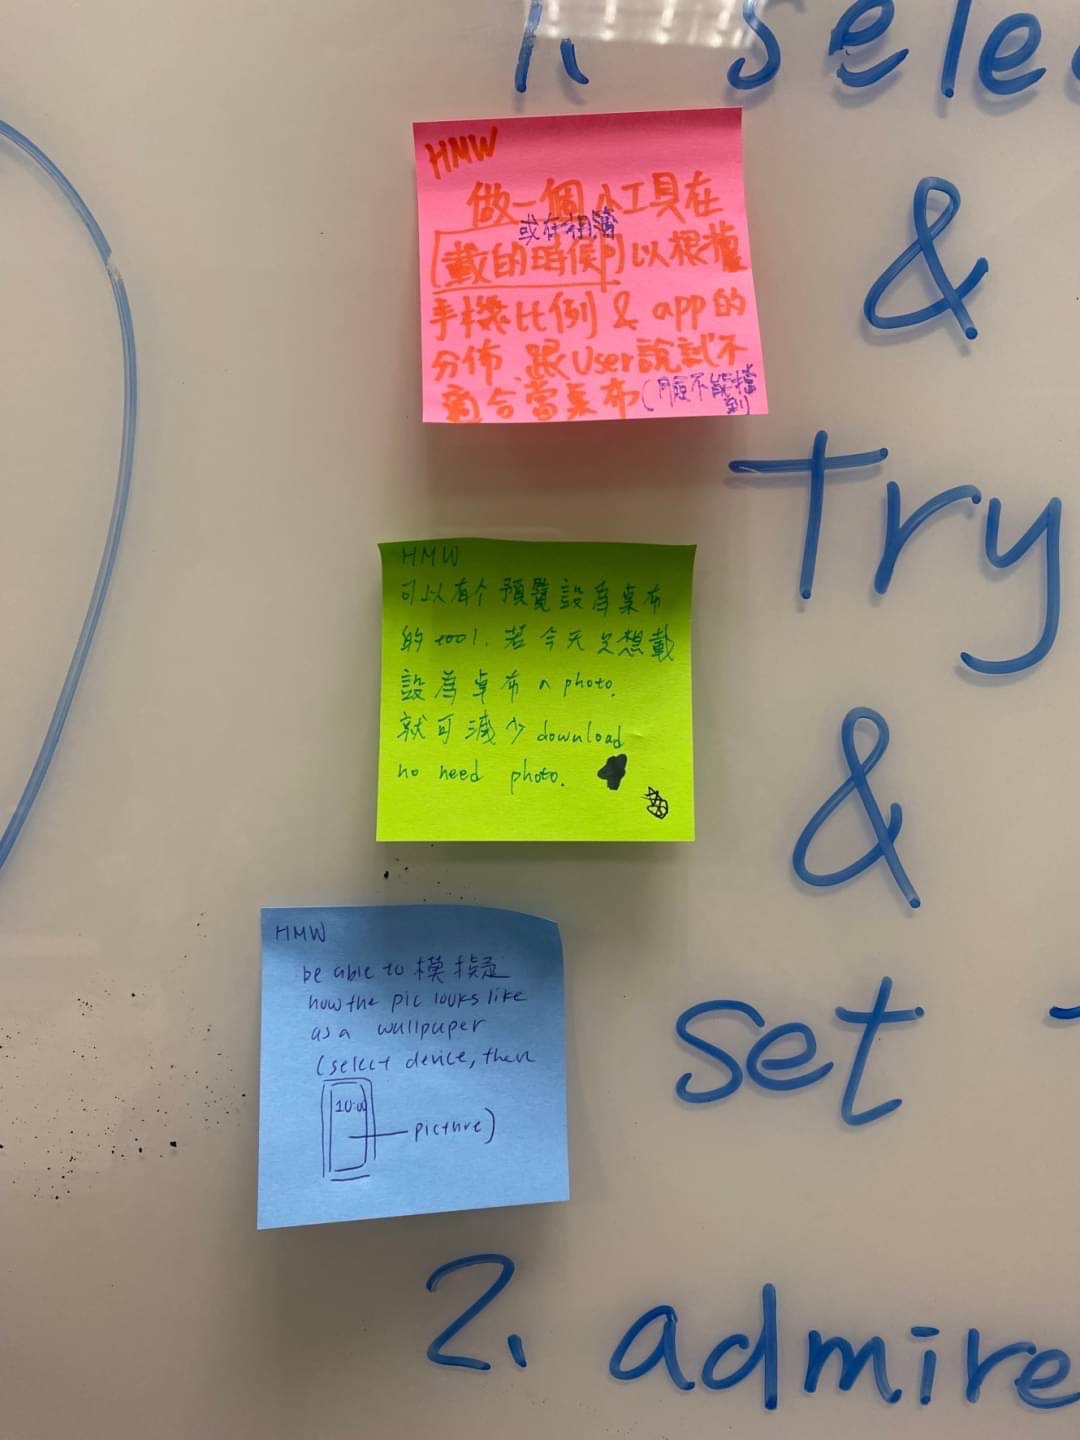 1. Sele
&
Try
&
set
2. admire
HMW
做一個小工具在
或在相簿
(載的時候)以根據
手機比例 & app的
分佈 跟User說試不
適合當桌布
(臉不能擋
到)
HMW
可以有个預覽設為桌布
的tool. 若今天只想載
設為桌布 photo,
就可減少download
no need photo.
HMW
be able to 模擬
how the pic looks like
as a wallpaper
(select device, then
10:00
picture)